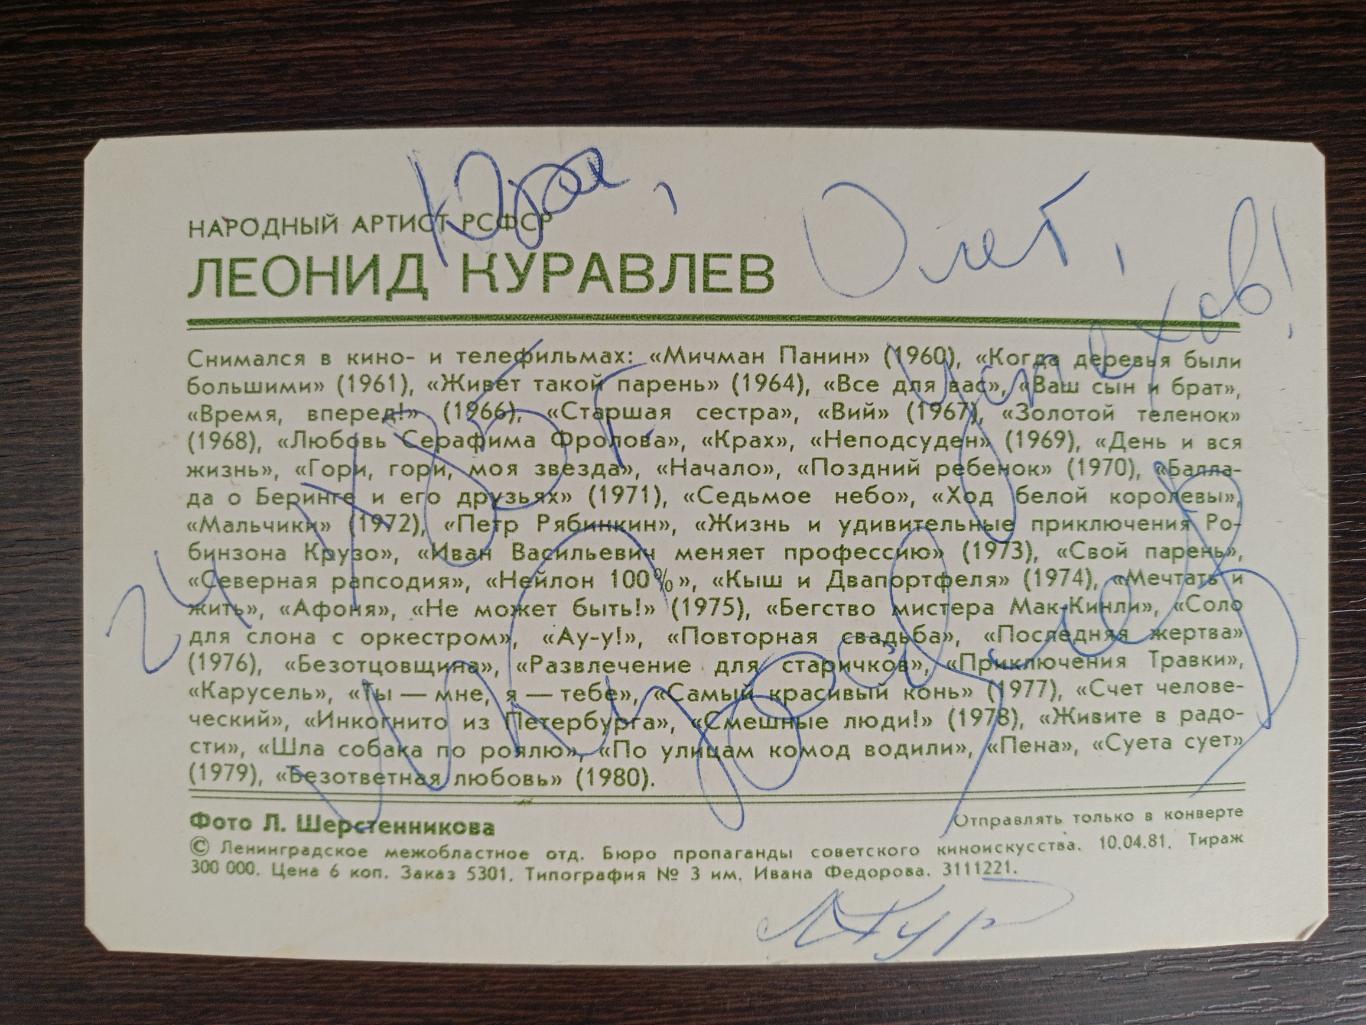 Юра, Олег,
успехов!
НАРОДНЫЙ АРТИСТ РСФСР
ЛЕОНИД КУРАВЛЕВ
Снимался в кино- и телефильмах: «Мичман Панин» (1960), «Когда деревья были
большими» (1961), «Живет такой парень» (1964), «Все для вас», «Ваш сын и брат»,
«Время, вперед!» (1966), «Старшая сестра», «Вий» (1967), «Золотой теленок»
(1968), «Любовь Серафима Фролова», «Крах», «Неподсуден» (1969), «День и вся
жизнь», «Гори, гори, моя звезда», «Начало», «Поздний ребенок» (1970), «Балла-
да о Беринге и его друзьях» (1971), «Седьмое небо», «Ход белой королевы»,
«Мальчики» (1972), «Петр Рябинкин», «Жизнь и удивительные приключения Ро-
бинзона Крузо», «Иван Васильевич меняет профессию» (1973), «Свой парень»,
«Северная рапсодия», «Нейлон 100%», «Кыш и Двапортфеля» (1974), «Мечтать и
жить», «Афоня», «Не может быть!» (1975), «Бегство мистера Мак-Кинли», «Соло
для слона с оркестром», «Ау-у!», «Повторная свадьба», «Последняя жертва»
(1976), «Безотцовщина», «Развлечение для старичков», «Приключения Травки»,
«Карусель», «Ты — мне, я — тебе», «Самый красивый конь» (1977), «Счет челове-
ческий», «Инкогнито из Петербурга», «Смешные люди!» (1978), «Живите в радо-
сти», «Шла собака по роялю», «По улицам комод водили», «Пена», «Суета сует»
(1979), «Безответная любовь» (1980).
Куравлев
Фото Л. Шерстенникова
Отправлять только в конверте
© Ленинградское межобластное отд. Бюро пропаганды советского киноискусства. 10.04.81. Тираж
300 000. Цена 6 коп. Заказ 5301. Типография № 3 им. Ивана Федорова. 3111221.